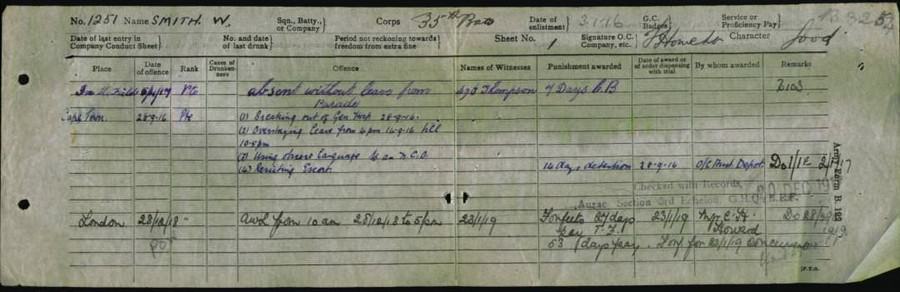 No. 1251 Name SMITH W. Sqn., Batty., or Company) Corps 35th Date of enlistment 3.1.16 G.C. Badges Service or Proficiency Pay)
Date of last entry in Company Conduct Sheet) No. and date of last drunk) Period not reckoning towards freedom from extra fine Sheet No. 1 Signature O.C. Company, etc. Character Good
Place Date of offence Rank Cases of Drunkenness Offence Names of Witnesses Punishment awarded Date of award or of order dispensing with trial By whom awarded Remarks
Pte absent without leave from Thompson 7 Days C.B B103
Parade
Cape Town 28-9-16 Pte (1) Breaking out of Gen Hosp 28-9-16.
(2) Overstaying Leave from 4 pm 14-9-16 till
10-5pm
(3) Using obscene Language to an N.C.O.
(4) Resisting Escort 14 days detention 28-9-16 O/C Depot
Checked with Records,
Section 3rd Echelon G.H.Q.
London 28/12/18 AWL from 10 am 28/12/18 to 5 pm 23/1/19 Forfeits 27 days 23/1/19
pay Howard
Army Form B. 122